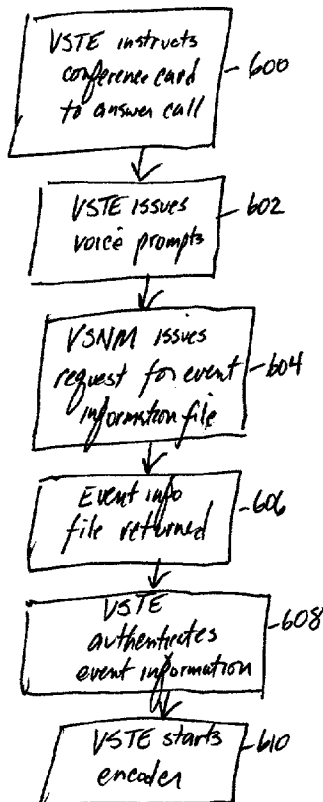 VSTE instructs
conference card
to answer call
600
VSTE issues
voice prompts
602
VSNM issues
request for event
information file
604
Event info
file returned
606
VSTE
authenticates
event information
608
VSTE starts
encoder
610